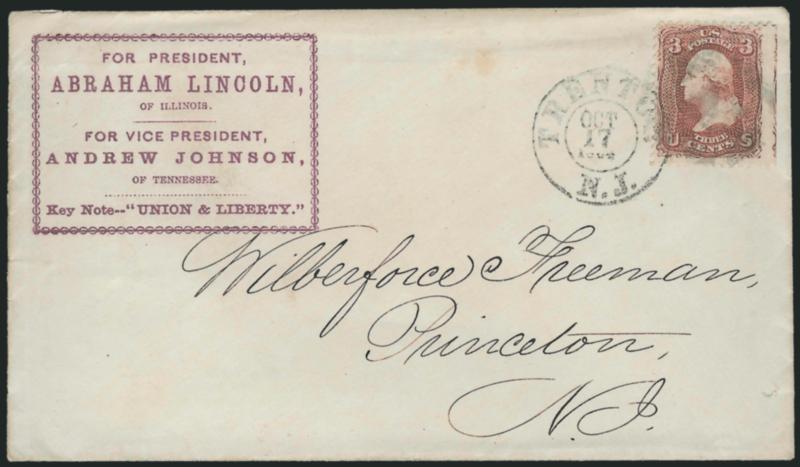 FOR PRESIDENT,
ABRAHAM LINCOLN,
OF ILLINOIS.
FOR VICE PRESIDENT,
ANDREW JOHNSON,
OF TENNESSEE.
Key Note--"UNION & LIBERTY."
TRENTON
OCT
17
N.J.
3 U.S. 3
POSTAGE
U S
THREE
CENTS
Wilberforce Freeman,
Princeton,
N.J.